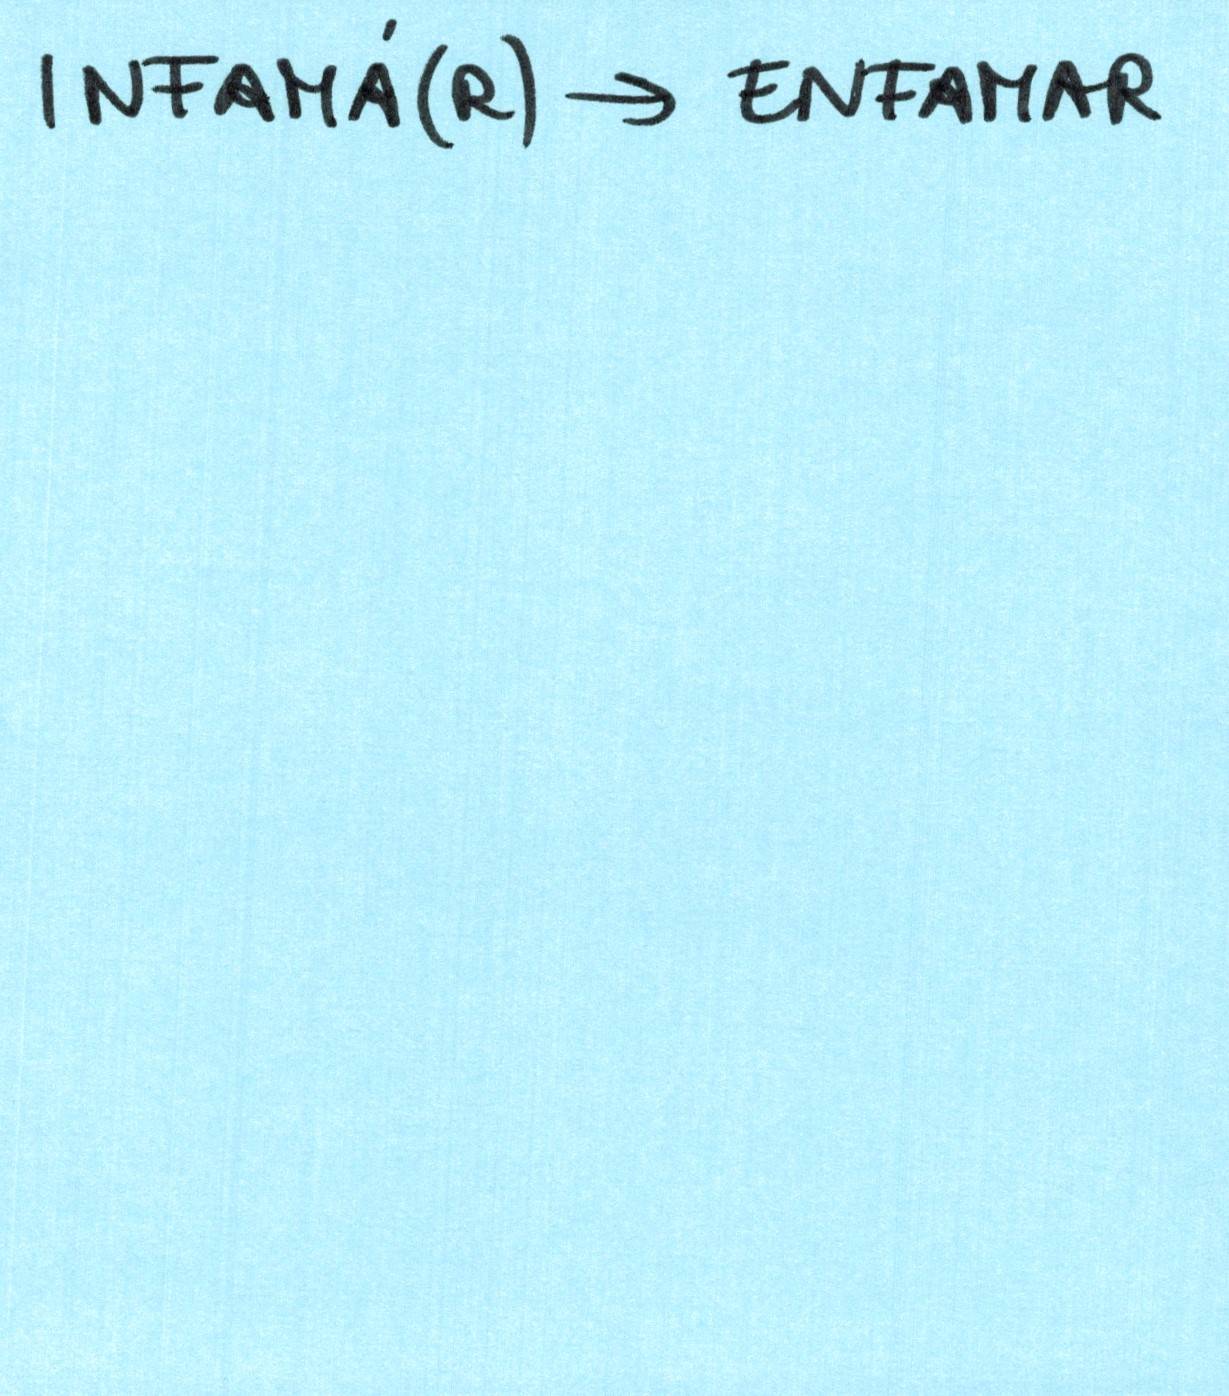 INFAMÁ(R) → ENFAMAR